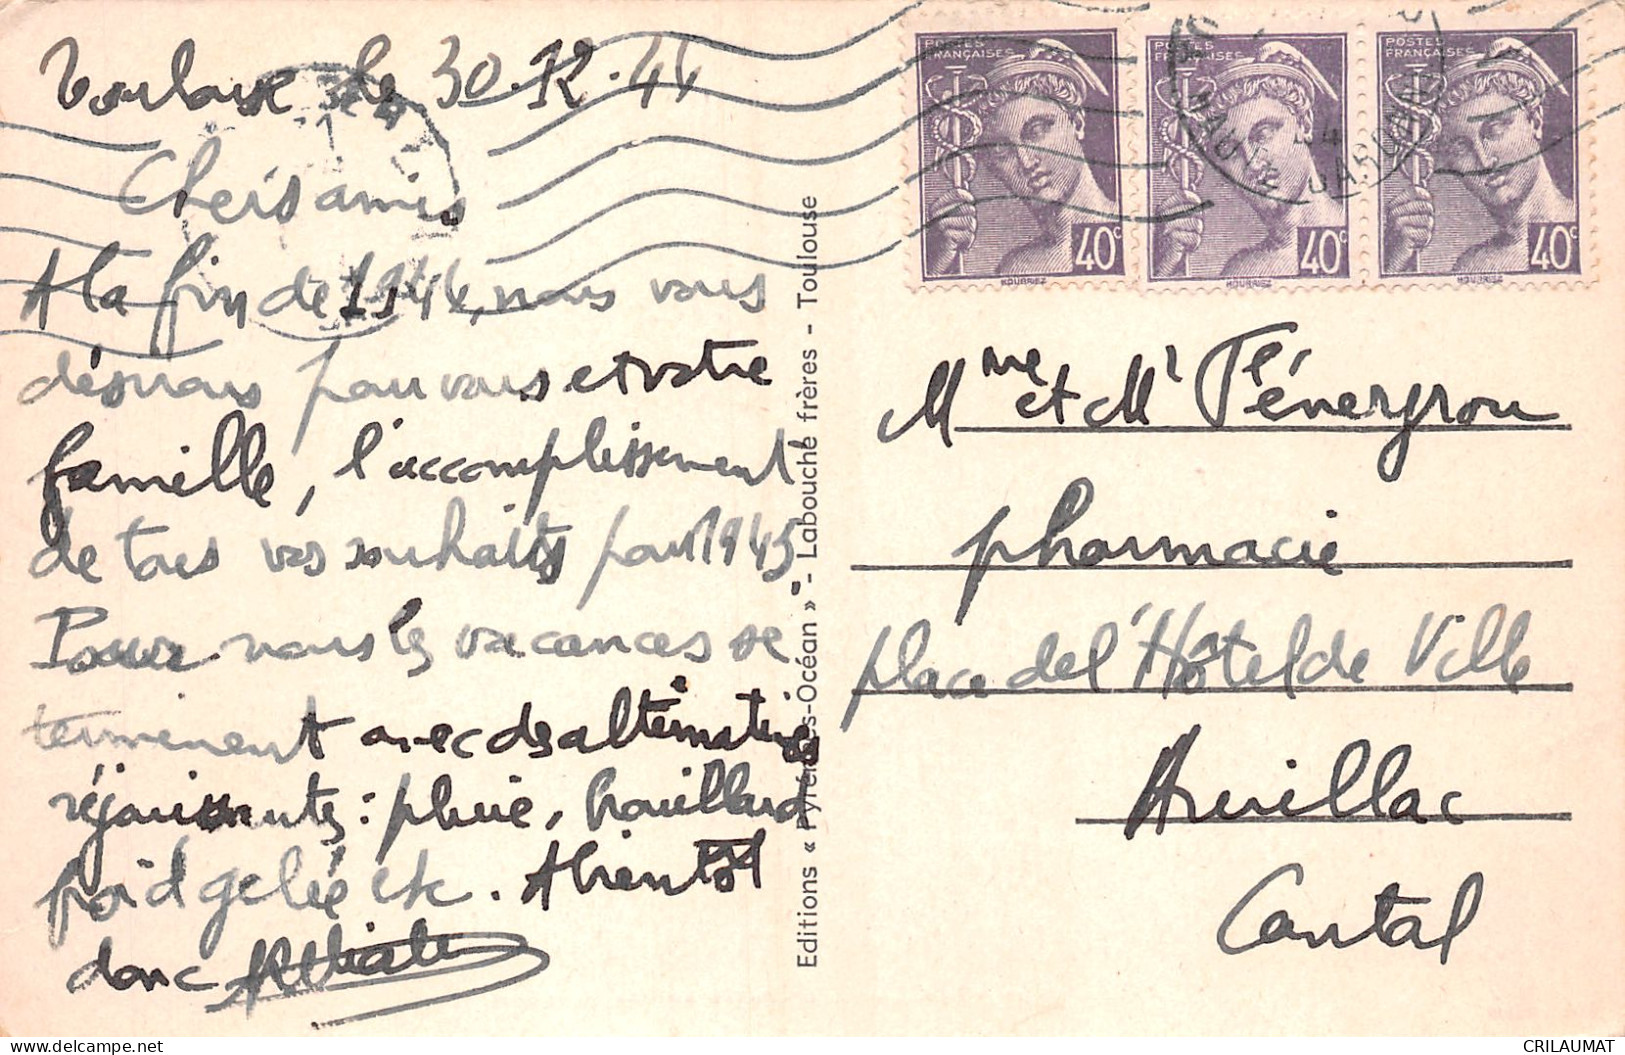 Toulouse le 30.12.44
Chers amis
A la fin de 1944, nous vous
désirons pour vous et votre
famille, l'accomplissement
de tous vos souhaits pour 1945
Pour nous les vacances se
terminent avec des alternatives
réjouissantes : pluie, brouillard
froid gelée etc. A bientôt
donc
Editions « Pyrénées-Océan » - Labouche frères - Toulouse
POSTES
FRANÇAISES
40c
HOURRIEZ
POSTES
FRANÇAISES
40c
HOURRIEZ
POSTES
FRANÇAISES
40c
HOURRIEZ
Mme et Mr Féneyrou
pharmacie
place de l'Hôtel de Ville
Aurillac
Cantal
CRILAUMAT